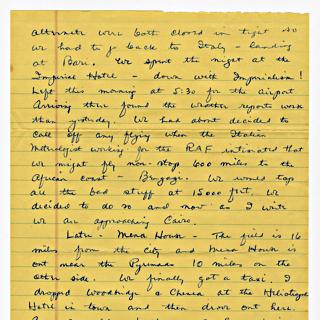 alternate were both closed in tight so
we had to go back to Italy - landing
at Bari. We spent the night at the
Imperial Hotel - down with Imperialism!
Left this morning at 5:30 for the airport
Arriving there found the weather reports worse
than yesterday. We had about decided to
call off any flying when the Italian
Metrologist working for the RAF intimated that
we might fly non-stop 600 miles to the
African coast - Bengazi. We would top
all the bad stuff at 15000 feet. We
decided to do so and now as I write
we are approaching Cairo.
Later - Mena House - The field is 16
miles from the City and Mena House is
out near the Pyramids 10 miles on the
other side. We finally got a taxi. I
dropped Woodbridge & Chesea at the Heliotropis
Hotel in town and then drove out here.